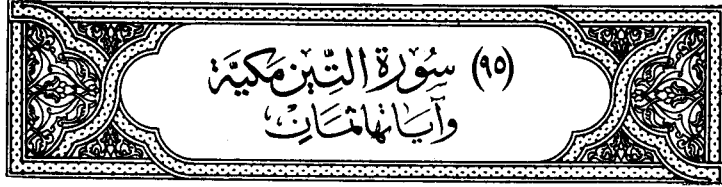 (٩٥) سُورَة التِّين مَكيَّة
وَآيَاتها ثمَان